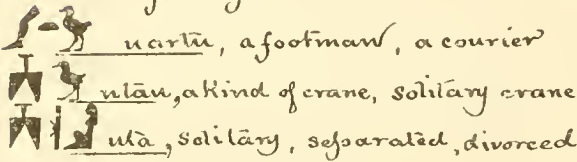 uartu, a footman, a courier
utau, a kind of crane, solitary crane
uta, solitary, separated, divorced